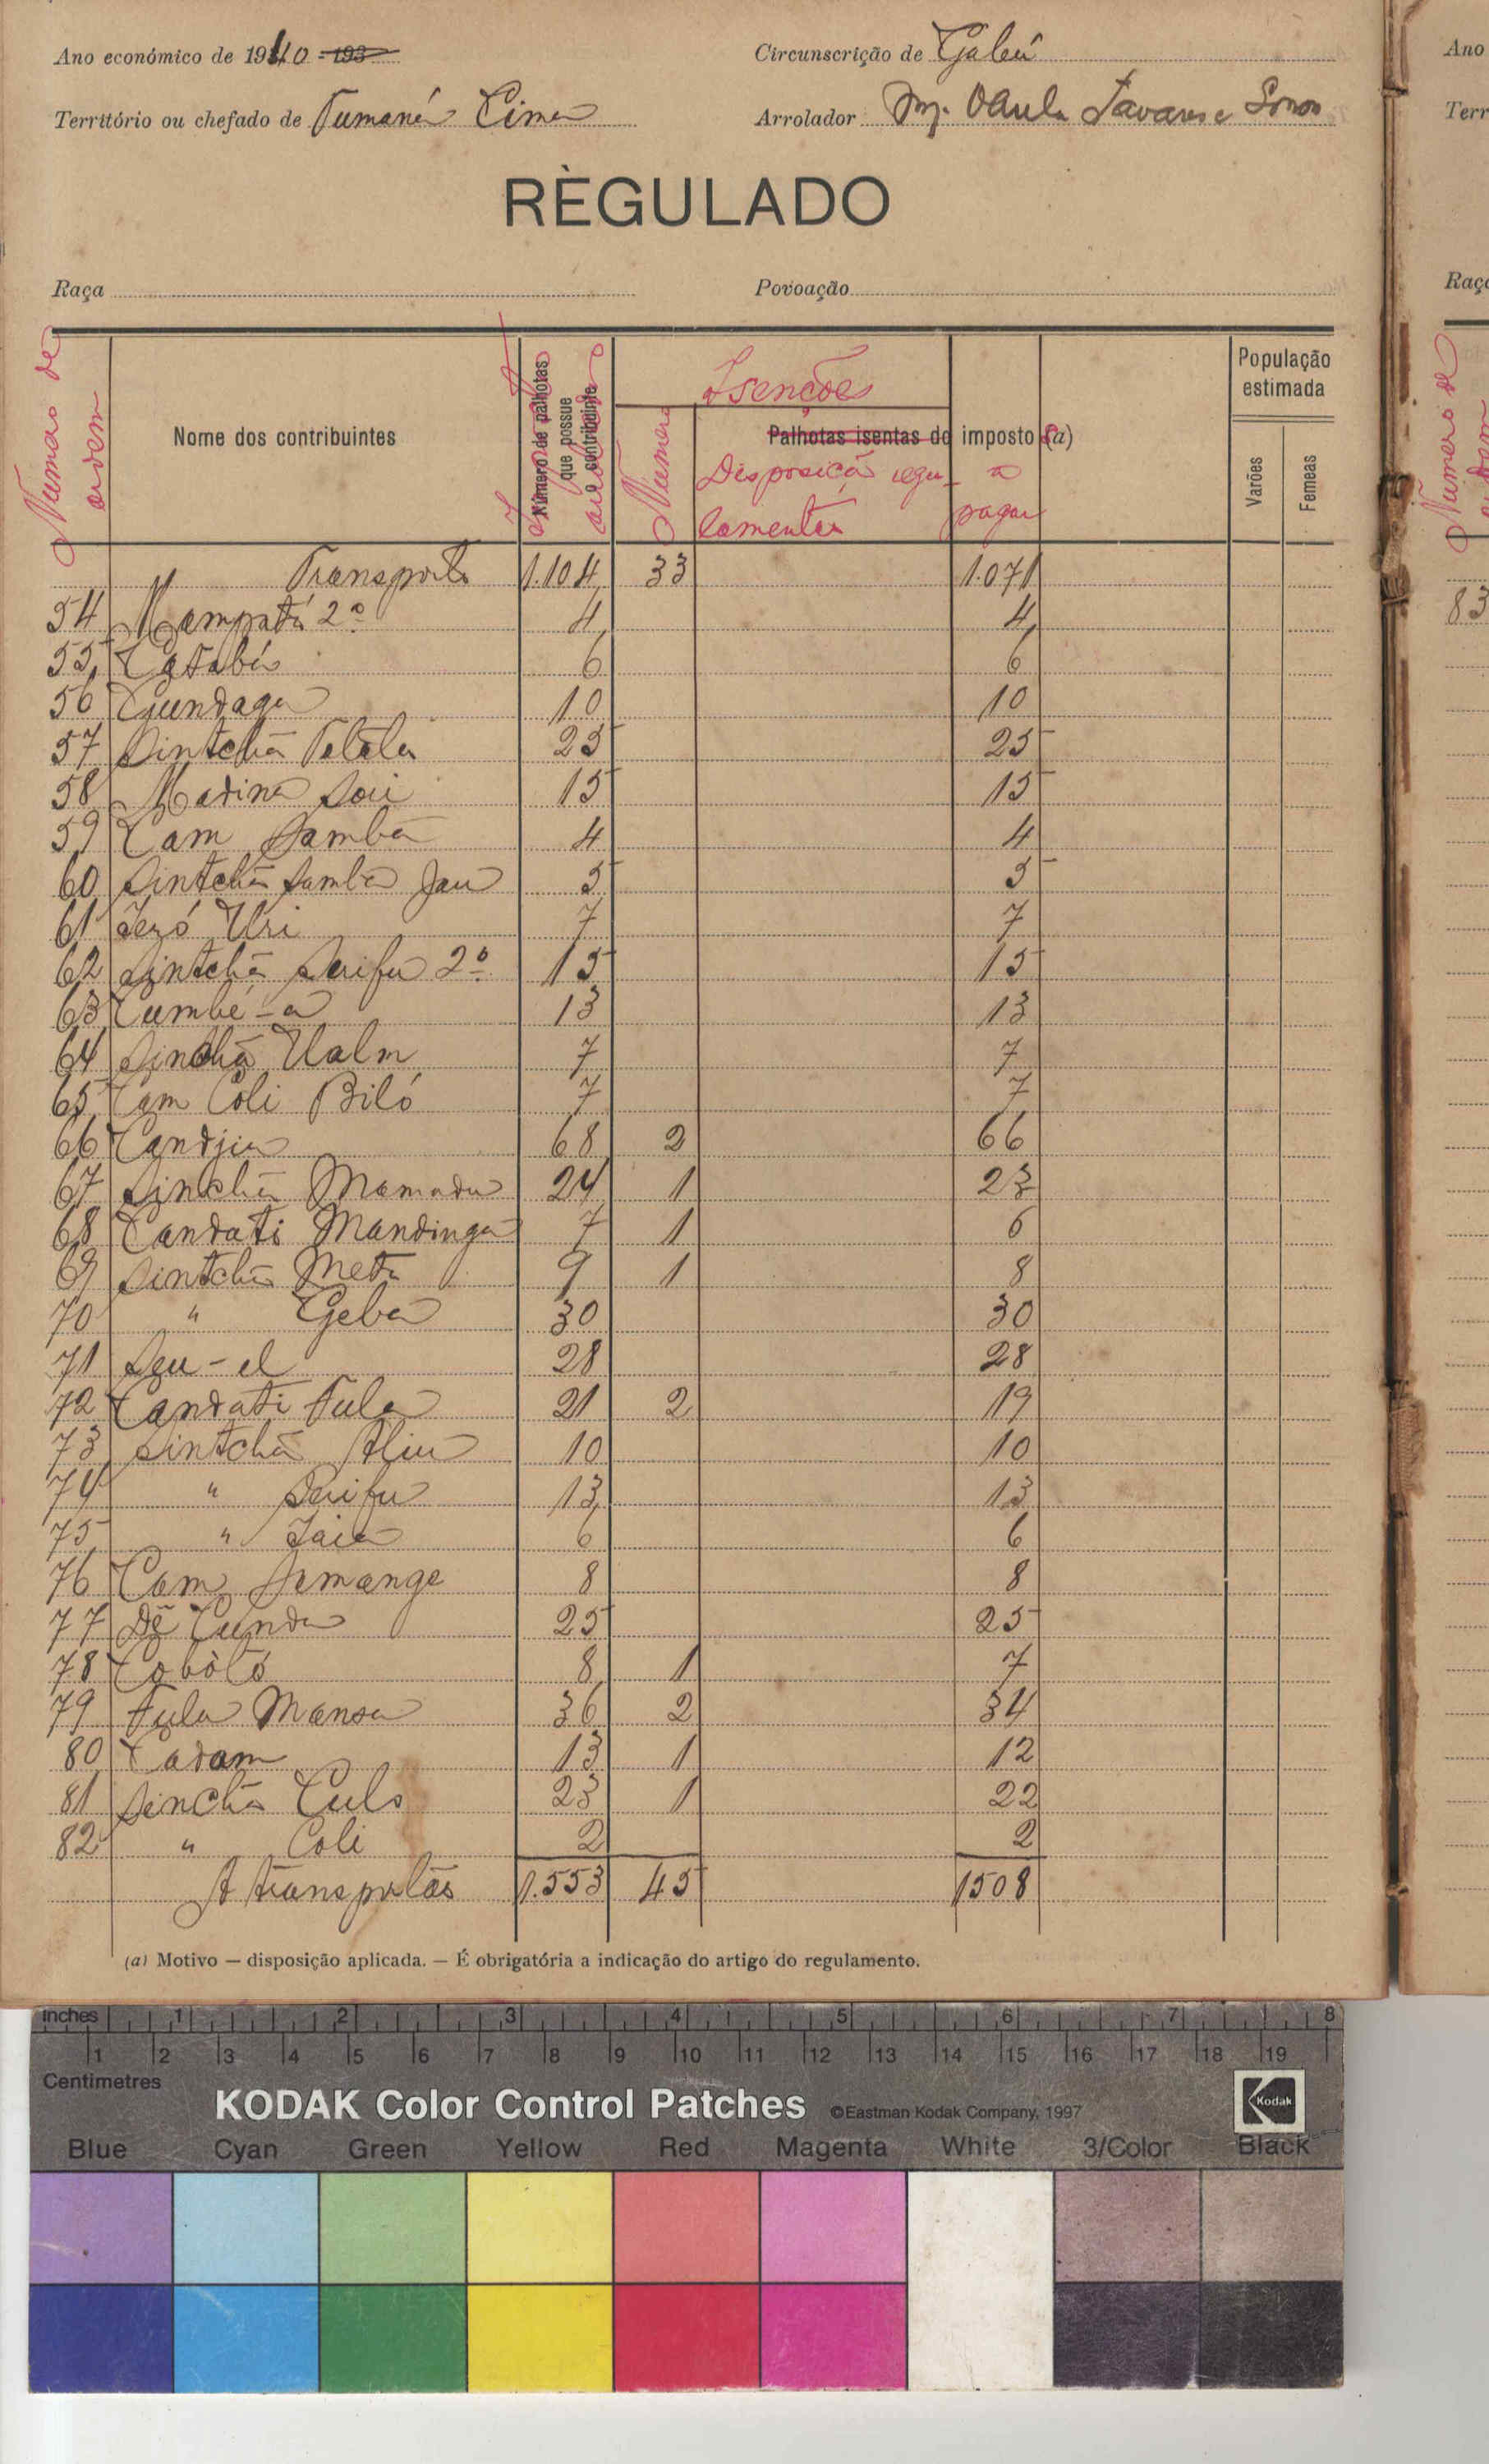 Ano económico de 1940 - 193
Circunscrição de Gabú
Território ou chefado de Tumaná Cima
Arrolador Tavares e
RÈGULADO
Raça
Povoação
Numero de ordem
Nome dos contribuintes
Imposto arrolado
Número de palhotas que possue o contribuinte
Isenções
Numero
Palhotas isentas do imposto (a)
Disposição regulamentar
a pagar
População estimada
Varões
Femeas
Transporte 1.104 33 1.071
54 Mampatá 2º 4 4
55 Catabá 6 6
56 Gundaga 10 10
57 Sintchã 25 25
58 Madina 15 15
59 Cam Sambá 4 4
60 Sintchã Samba Jau 5 5
61 Uri 7 7
62 Sintchã Serifu 2º 15 15
63 Cumbé-a 13 13
64 7 7
65 Cam Coli Biló 7 7
66 Candjia 68 2 66
67 Sinchã Mamadu 24 1 23
68 Candati Mandinga 7 1 6
69 Sintchã Meta 9 1 8
70 " Geba 30 30
71 Seu-el 28 28
72 Candati Fula 21 2 19
73 Sintchã Aliu 10 10
74 " Serifu 13 13
75 " Jaia 6 6
76 Cam Samange 8 8
77 Dê Cunda 25 25
78 Cobòló 8 1 7
79 Fula Mansa 36 2 34
80 Cadam 13 1 12
81 Sinchã Culo 23 1 22
82 " Coli 2 2
A transportar 1.553 45 1508
(a) Motivo — disposição aplicada. — É obrigatória a indicação do artigo do regulamento.
Ano
Terr
Raça
Número de
83
inches 1 2 3 4 5 6 7 8
1 2 3 4 5 6 7 8 9 10 11 12 13 14 15 16 17 18 19
Centimetres
KODAK Color Control Patches ©Eastman Kodak Company, 1997
Kodak
Blue Cyan Green Yellow Red Magenta White 3/Color Black